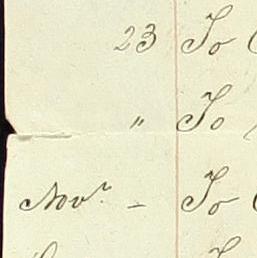 23 To
" To
Novr. - To